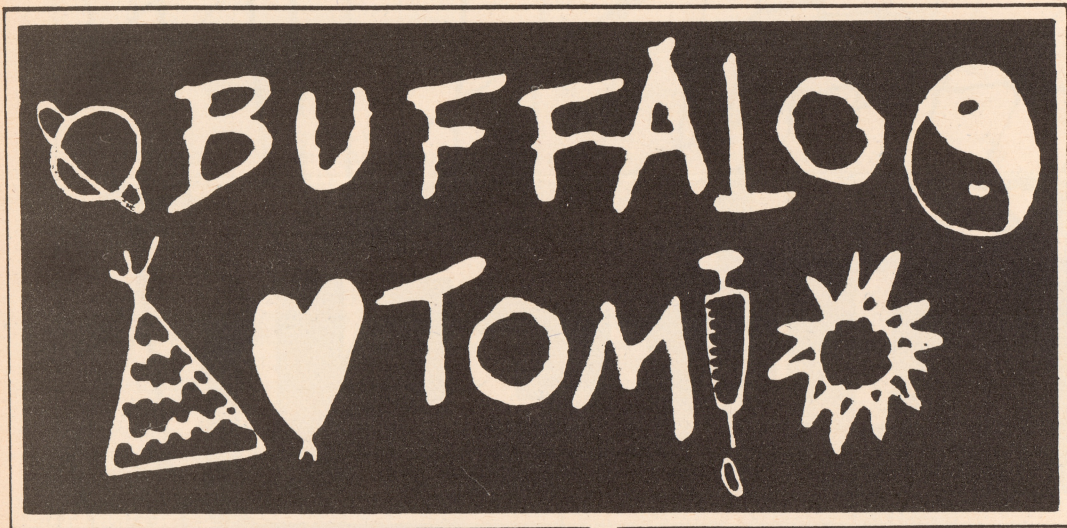 BUFFALO
TOM